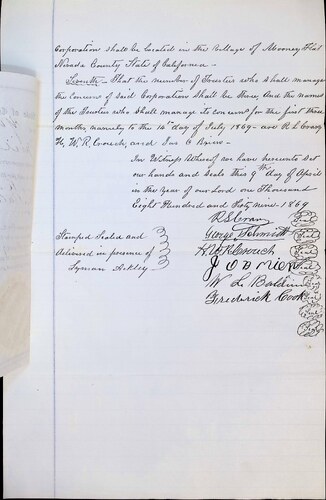 Corporation shall be located in the Village of Mooney Flat
Nevada County State of California -
Seventh - That the number of Trustees who shall manage
the Concerns of said Corporation shall be three, And the names
of the Trustees who shall manage its concerns for the first three
Months namely to the 16th day of July 1869 - are R. S. Cravy
H. W. R. Crouch, and Jas O Brien
In Witness Whereof we have hereunto set
our hands and Seals this 9th day of April
in the Year of our Lord one Thousand
Eight Hundred and Sixty nine - 1869
Stamped Sealed and
delivered in presence of
Lyman Ackley
George Schmidt Seal
H. W. R. Crouch Seal
J O Brien Seal
W. L. Baldwin
Frederick Cook